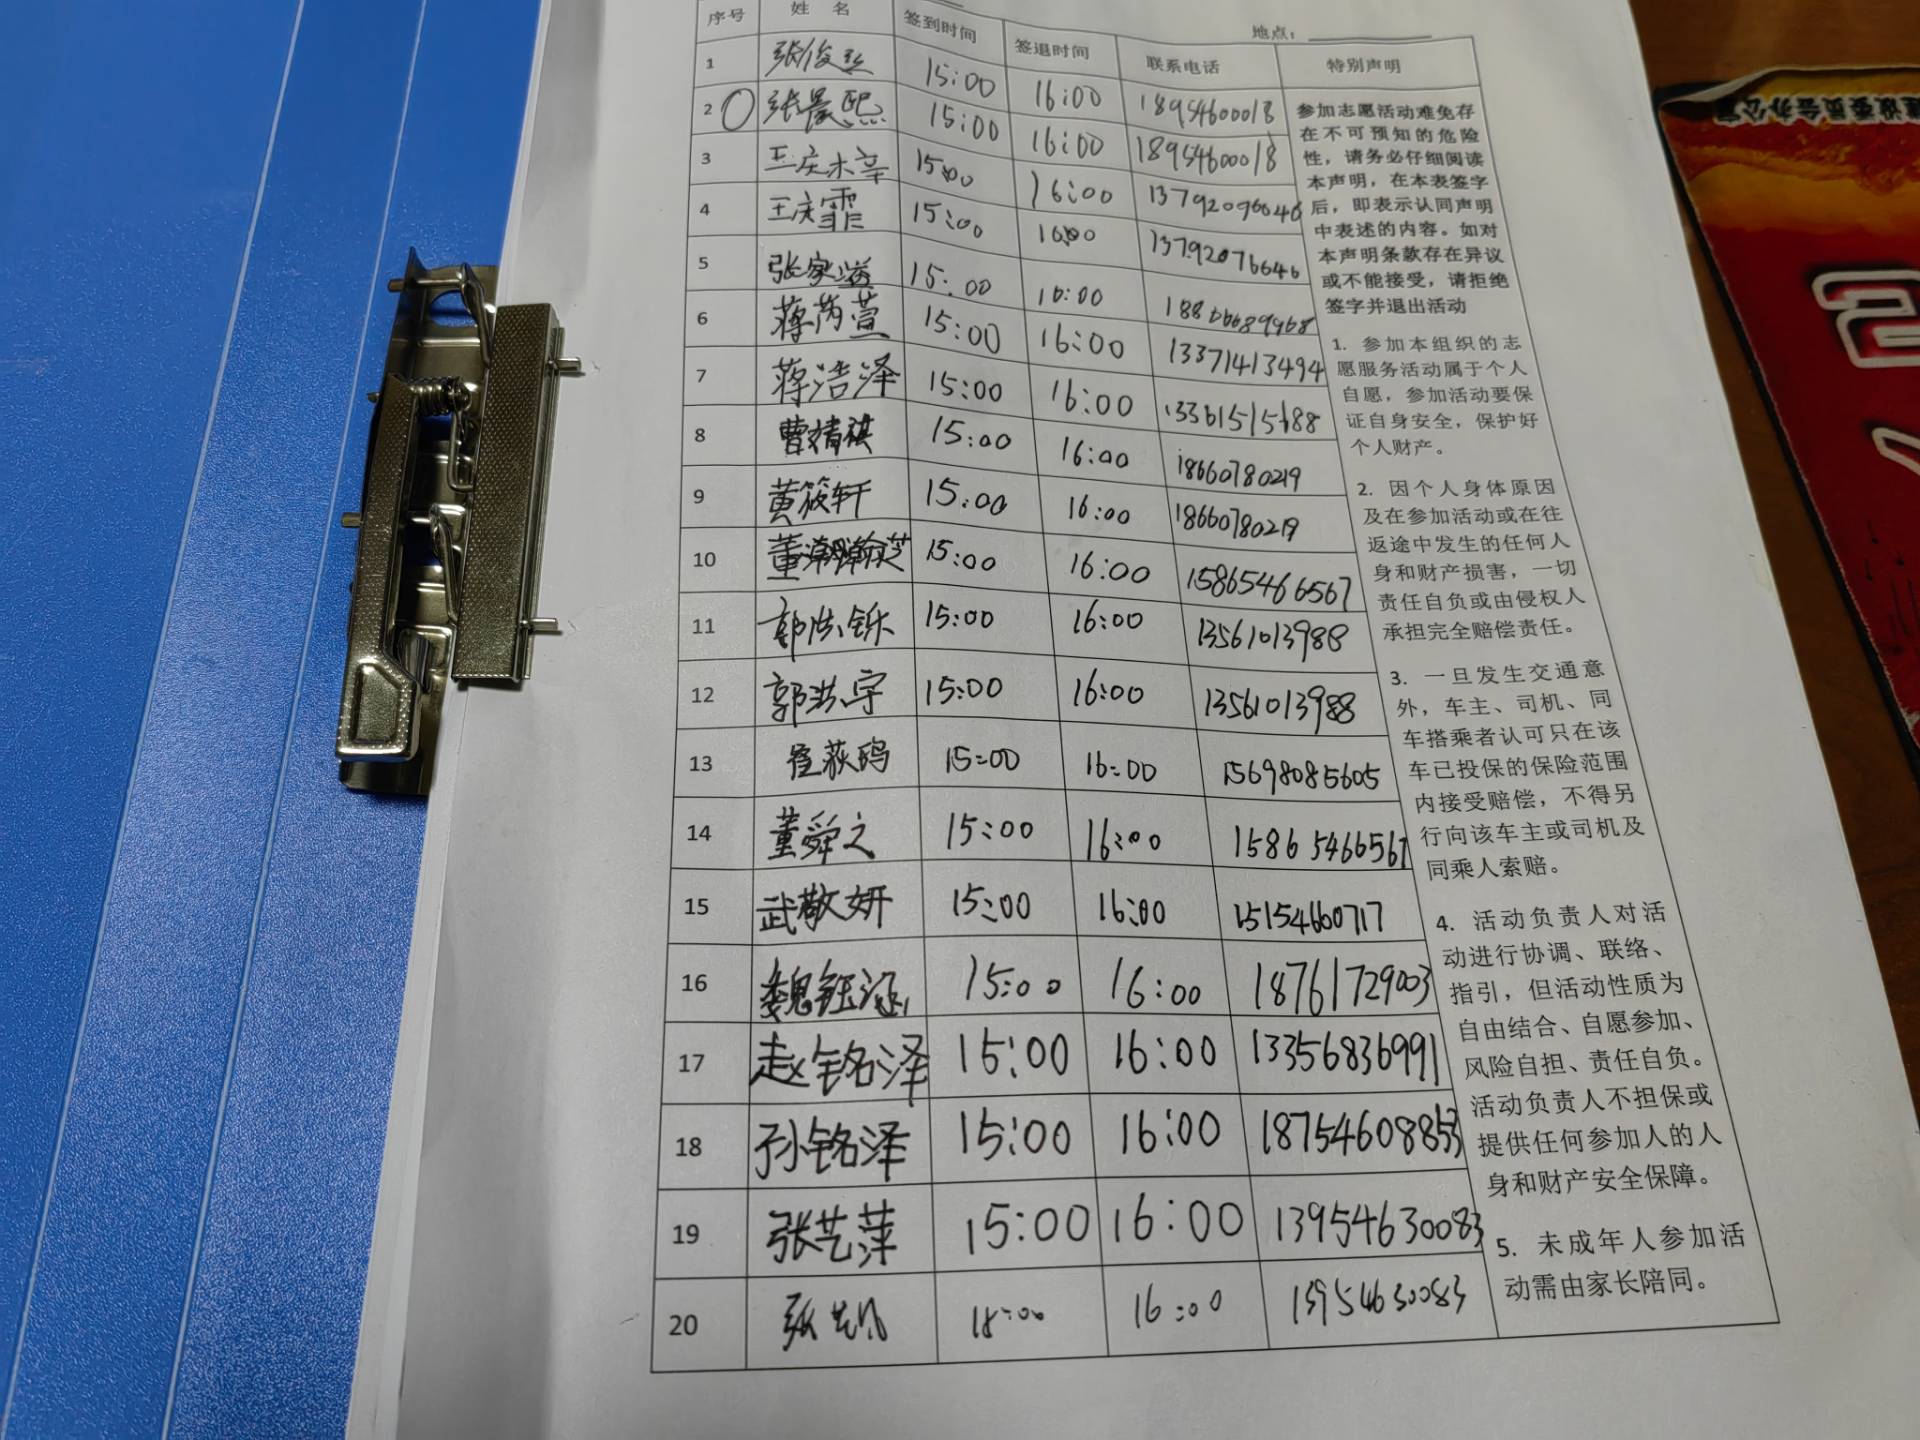 地点：
序号 姓 名 签到时间 签退时间 联系电话 特别声明
1 张俊 15:00 16:00 18954600018
2 张景熙 15:00 16:00 18954600018
3 王庆 15:00 16:00
4 王庆霏 15:00 16:00
5 张家溢 15:00 16:00
6 蒋芮萱 15:00 16:00 13371413494
7 蒋浩泽 15:00 16:00 13361515688
8 曹靖祺 15:00 16:00 18660780219
9 黄筱轩 15:00 16:00 18660780219
10 董 15:00 16:00 15865466567
11 郭洪铄 15:00 16:00 13561013988
12 郭洪宇 15:00 16:00 13561013988
13 荻鸥 15:00 16:00 15698085605
14 董舜之 15:00 16:00 15865466567
15 武敬妍 15:00 16:00 15154600717
16 魏钰涵 15:00 16:00 18761729003
17 赵铭泽 15:00 16:00 13356836991
18 孙铭泽 15:00 16:00
19 张艺萍 15:00 16:00 13954630083
20 张 16:00 13954630083
参加志愿活动难免存
在不可预知的危险
性，请务必仔细阅读
本声明，在本表签字
后，即表示认同声明
中表述的内容。如对
本声明条款存在异议
或不能接受，请拒绝
签字并退出活动
1. 参加本组织的志
愿服务活动属于个人
自愿，参加活动要保
证自身安全，保护好
个人财产。
2. 因个人身体原因
及在参加活动或在往
返途中发生的任何人
身和财产损害，一切
责任自负或由侵权人
承担完全赔偿责任。
3. 一旦发生交通意
外，车主、司机、同
车搭乘者认可只在该
车已投保的保险范围
内接受赔偿，不得另
行向该车主或司机及
同乘人索赔。
4. 活动负责人对活
动进行协调、联络、
指引，但活动性质为
自由结合、自愿参加、
风险自担、责任自负。
活动负责人不担保或
提供任何参加人的人
身和财产安全保障。
5. 未成年人参加活
动需由家长陪同。
建设委员会办公室